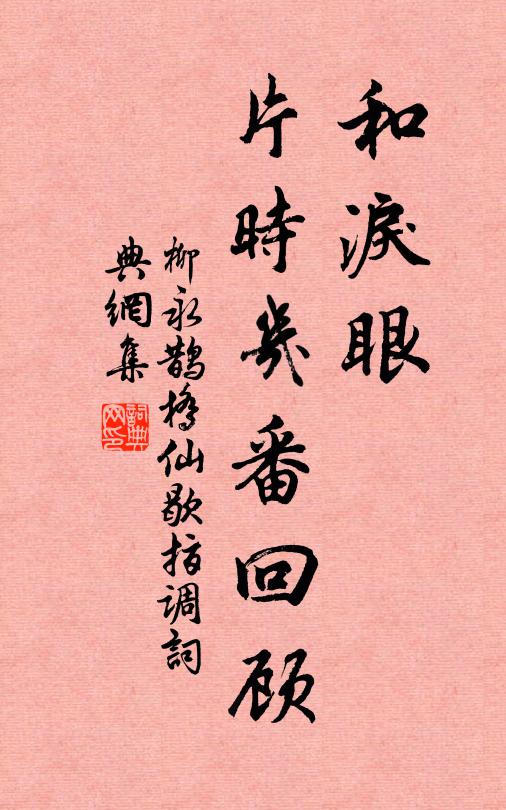 和淚眼
片時幾番回顾
柳永鵲橋仙歇指调詞
典網集
詞典网印